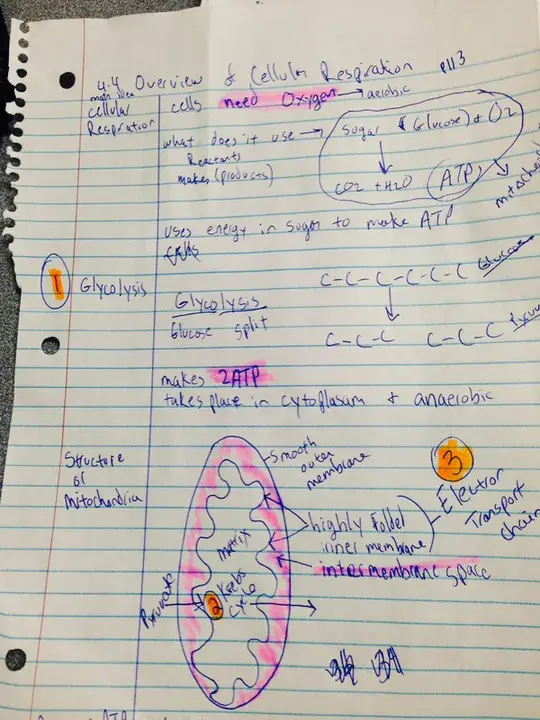 4.4 Overview of Cellular Respiration p113
main idea
cellular
Respiration
cells need Oxygen → aerobic
what does it use →
Reactants
makes (products)
Sugar (Glucose) + O2
CO2 + H2O ATP
uses energy in sugar to make ATP
1 Glycolysis
Glycolysis
Glucose split
C-C-C-C-C-C Glucose
C-C-C C-C-C
makes 2ATP
takes place in cytoplasum + anaerobic
Structure
of
Mitochondria
Smooth
outer
membrane
3
Electron
Transport
chain
highly folded
inner membrane
intermembrane space
matrix
Pyruvate
2 Krebs
Cycle